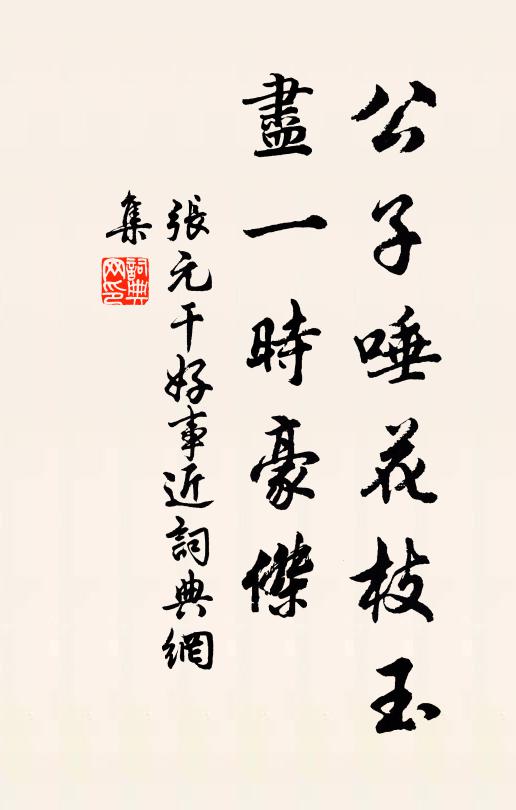 公子唾花枝玉
盡一時豪傑
張元干好事近詞典網
集
詞典
网印